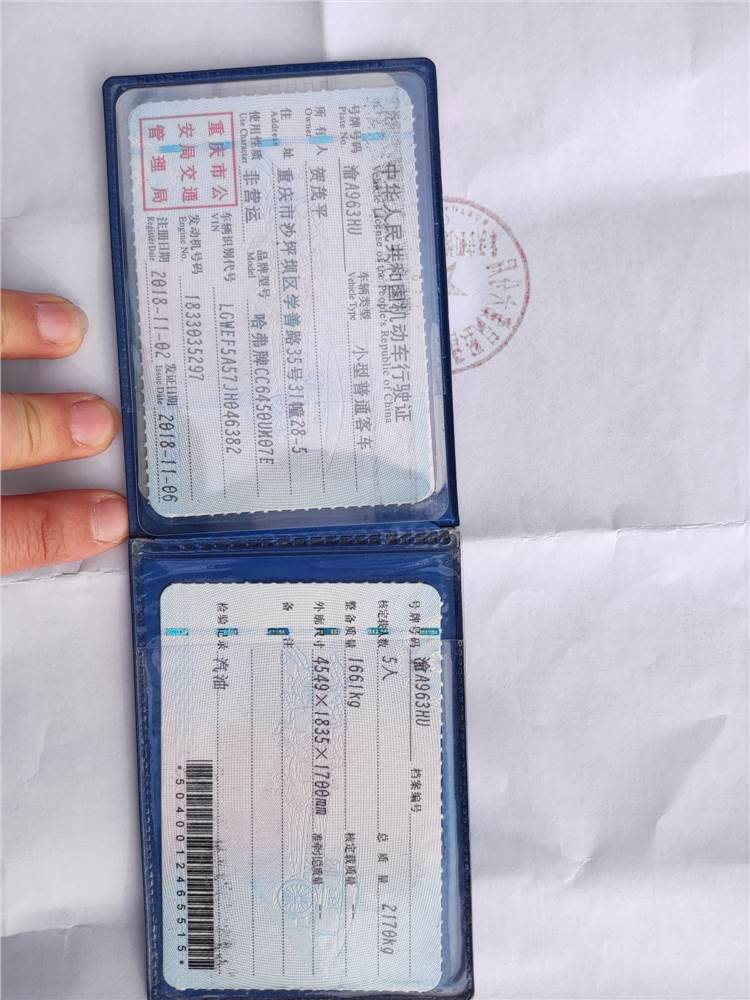 中华人民共和国机动车行驶证
Vehicle License of the People's Republic of China
号牌号码 渝A963HU 车辆类型 小型普通客车
Plate No. Vehicle Type
所有人 贺茂平
Owner
住址 重庆市沙坪坝区学善路35号31幢28-5
Address
使用性质 非营运 品牌型号 哈弗牌CC6450UM07E
Use Character Model
重庆市公
安局交通
管理局
车辆识别代号 LGWEF5A57JH046382
VIN
发动机号码 1833035297
Engine No.
注册日期 2018-11-02 发证日期 2018-11-06
Register Date Issue Date
号牌号码 渝A963HU 档案编号
核定载人数 5人 总质量 2170kg
整备质量 1661kg 核定载质量 --
外廓尺寸 4549×1835×1700mm 准牵引总质量 --
备注
检验记录 汽油
*5040012465515*